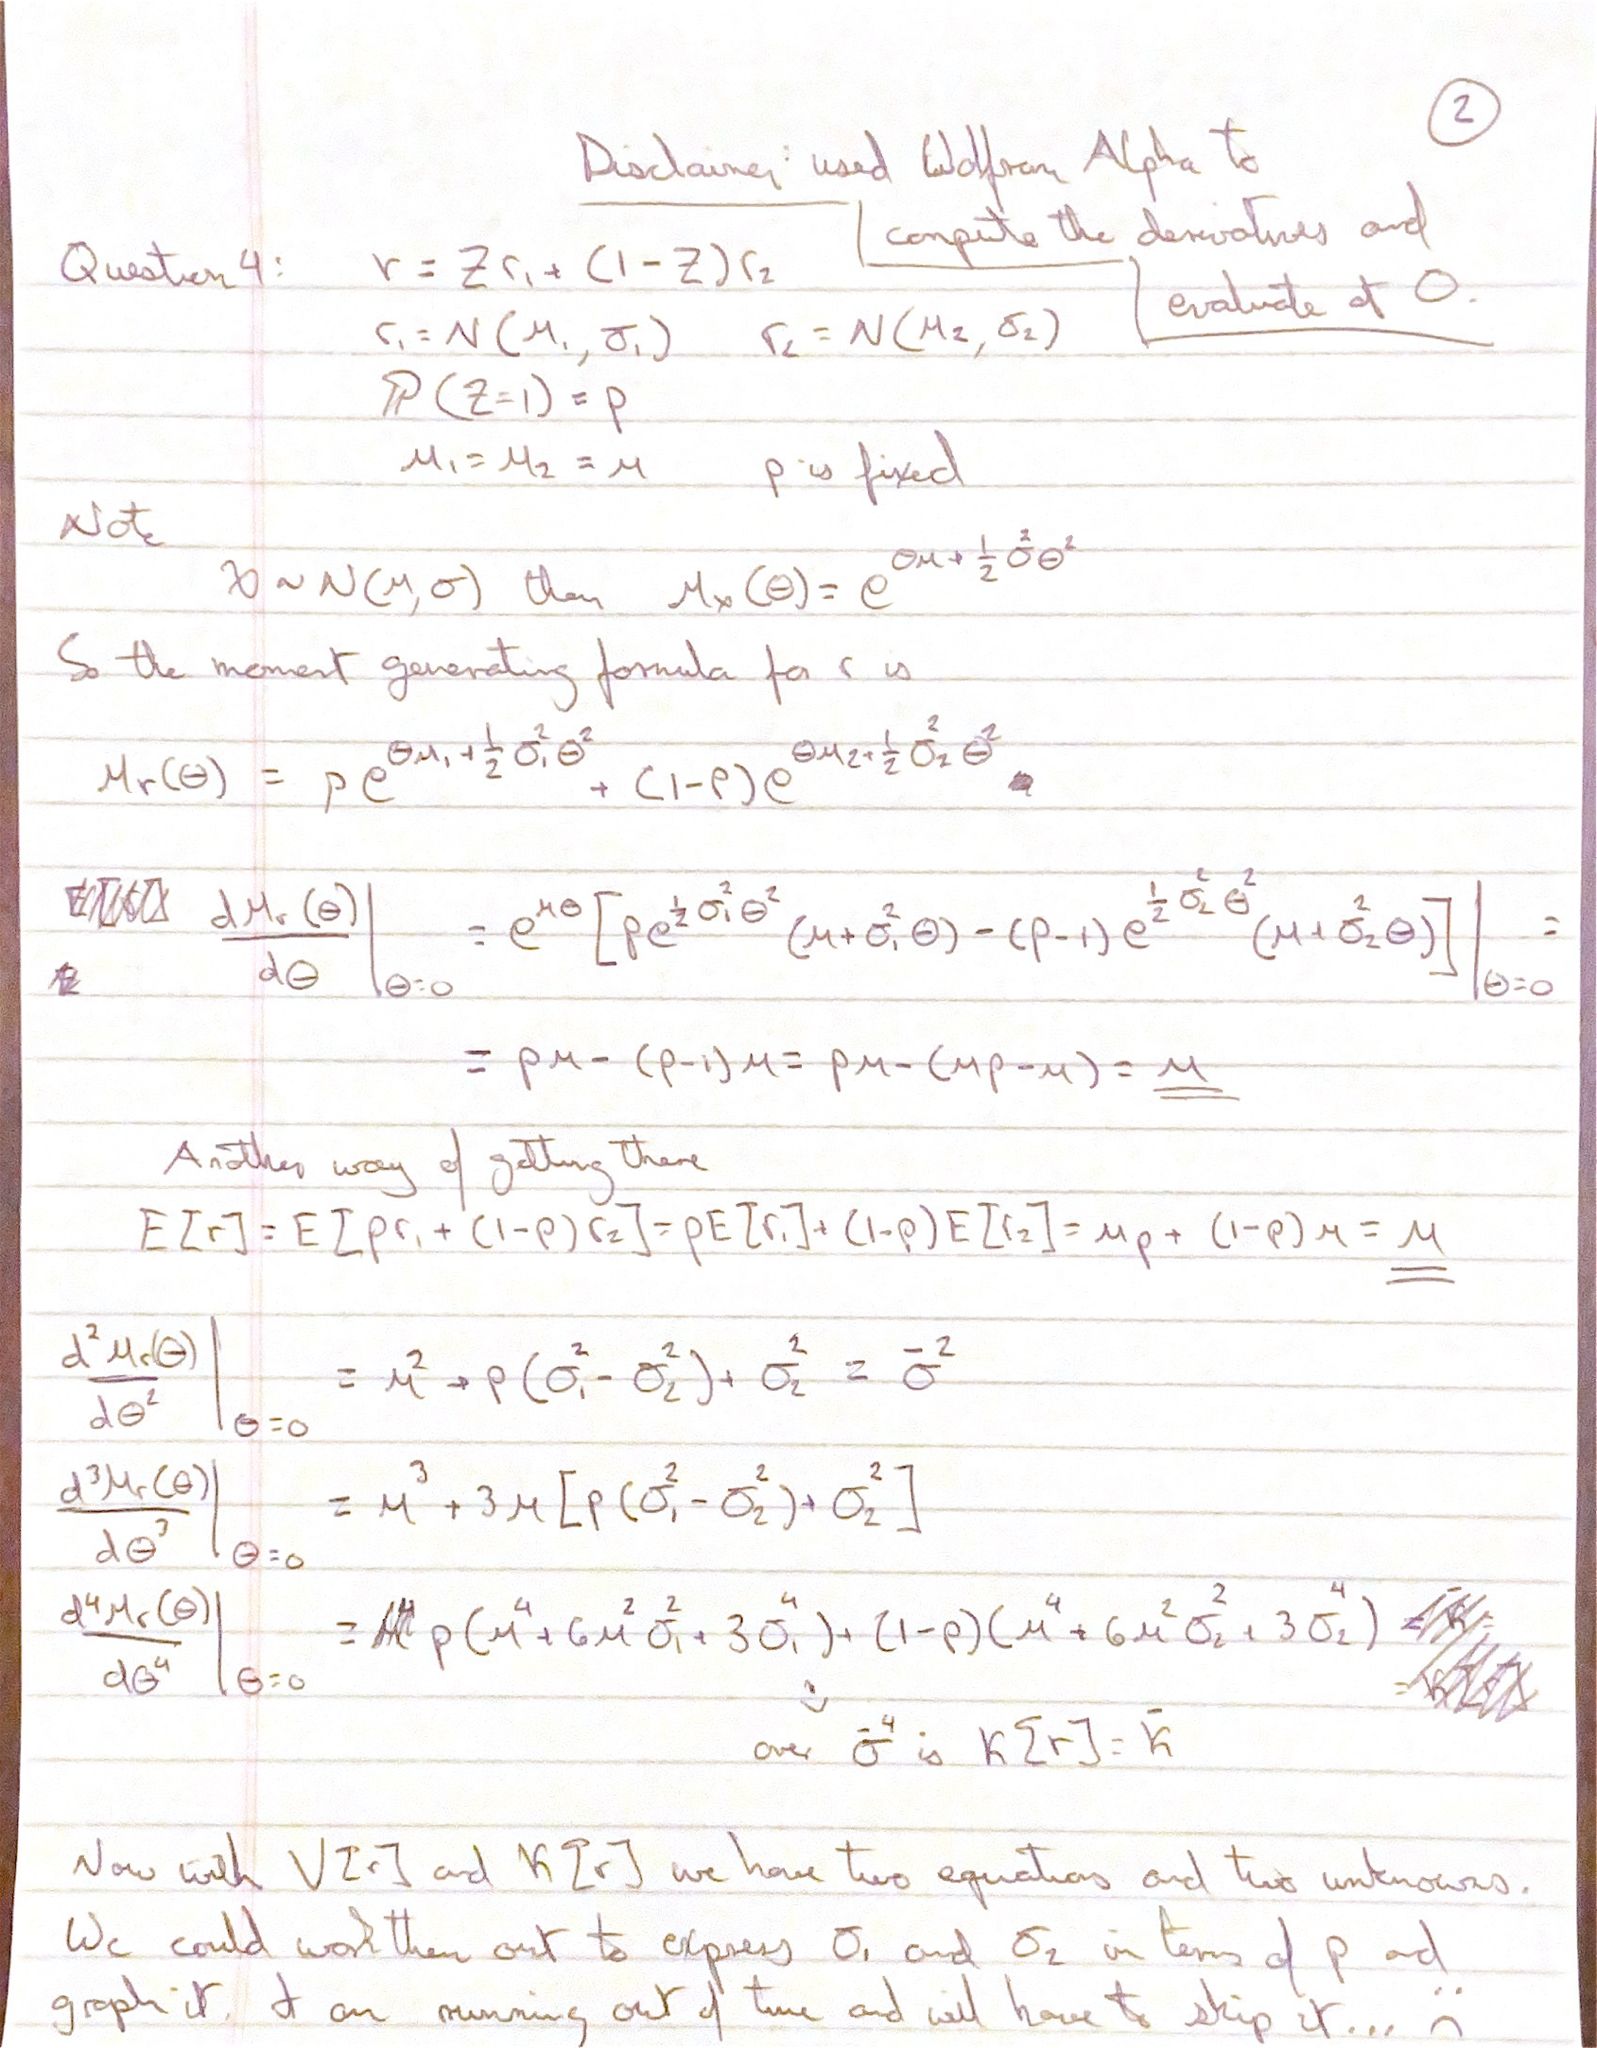 2
Disclaimer: used Wolfram Alpha to
compute the derivatives and
evaluate at 0.
Question 4: r = Z r₁ + (1 - Z) r₂
r₁ = N(μ₁, σ₁) r₂ = N(μ₂, σ₂)
ℙ(Z=1) = p
μ₁ = μ₂ = μ p is fixed
Note
x ~ N(μ, σ) then Mₓ(θ) = e^{θμ + ½ σ²θ²}
So the moment generating formula for r is
Mᵣ(θ) = p e^{θμ₁ + ½ σ₁²θ²} + (1-p) e^{θμ₂ + ½ σ₂²θ²}
dMᵣ(θ)/dθ |_{θ=0} = e^{μθ} [p e^{½ σ₁²θ²} (μ + σ₁²θ) - (p-1) e^{½ σ₂²θ²} (μ + σ₂²θ)] |_{θ=0} =
= pμ - (p-1)μ = pμ - (μp - μ) = μ
Another way of getting there
E[r] = E[p r₁ + (1-p) r₂] = pE[r₁] + (1-p)E[r₂] = μp + (1-p)μ = μ
d²Mᵣ(θ)/dθ² |_{θ=0} = μ² + p(σ₁² - σ₂²) + σ₂² = σ̄²
d³Mᵣ(θ)/dθ³ |_{θ=0} = μ³ + 3μ[p(σ₁² - σ₂²) + σ₂²]
d⁴Mᵣ(θ)/dθ⁴ |_{θ=0} = p(μ⁴ + 6μ²σ₁² + 3σ₁⁴) + (1-p)(μ⁴ + 6μ²σ₂² + 3σ₂⁴)
over σ̄⁴ is K[r] = K̄
Now with V[r] and K[r] we have two equations and two unknowns.
We could work them out to express σ₁ and σ₂ in terms of p and
graph it. I am running out of time and will have to skip it... :(